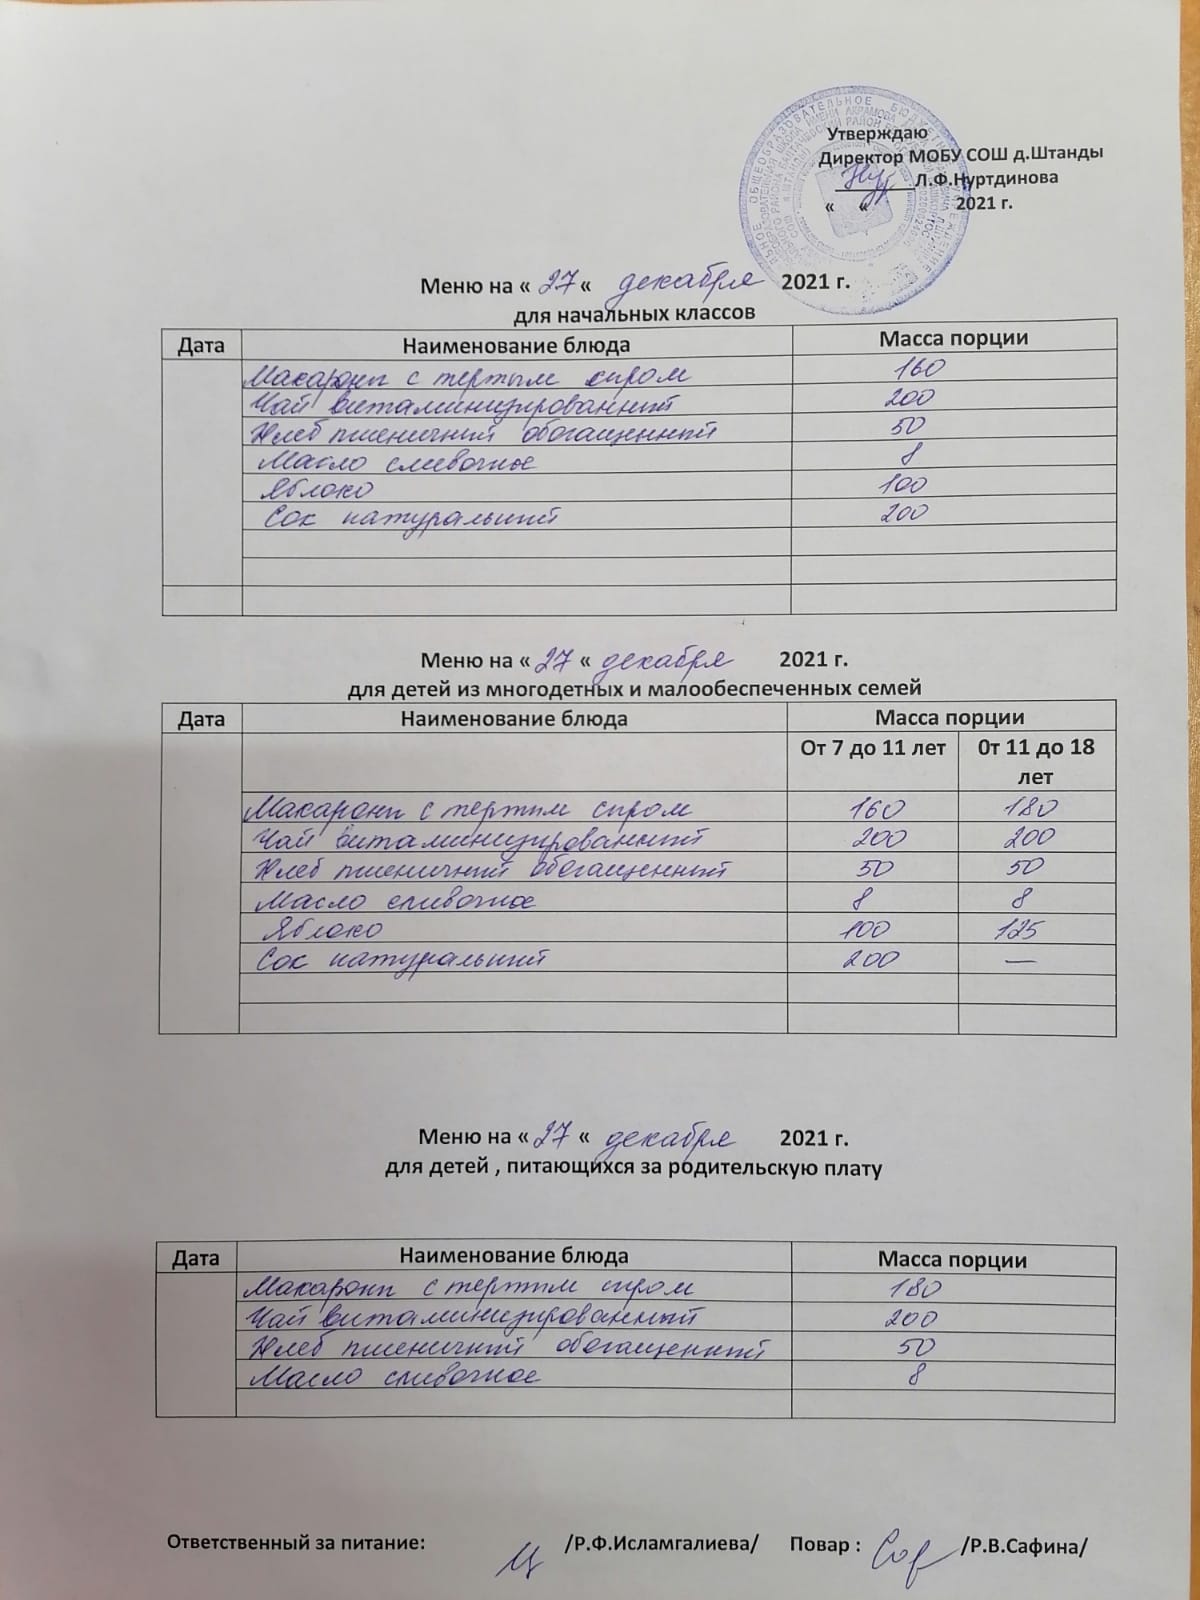 Утверждаю
Директор МОБУ СОШ д.Штанды
Л.Ф.Нуртдинова
« « 2021 г.
Меню на « 27 « декабря 2021 г.
для начальных классов
Дата Наименование блюда Масса порции
Макароны с тертым сыром 160
Чай витаминизированный 200
Хлеб пшеничный обогащенный 50
Масло сливочное 8
Яблоко 100
Сок натуральный 200
Меню на « 27 « декабря 2021 г.
для детей из многодетных и малообеспеченных семей
Дата Наименование блюда Масса порции
От 7 до 11 лет 0т 11 до 18
лет
Макароны с тертым сыром 160 180
Чай витаминизированный 200 200
Хлеб пшеничный обогащенный 50 50
Масло сливочное 8 8
Яблоко 100 125
Сок натуральный 200 —
Меню на « 27 « декабря 2021 г.
для детей , питающихся за родительскую плату
Дата Наименование блюда Масса порции
Макароны с тертым сыром 180
Чай витаминизированный 200
Хлеб пшеничный обогащенный 50
Масло сливочное 8
Ответственный за питание: /Р.Ф.Исламгалиева/ Повар : /Р.В.Сафина/